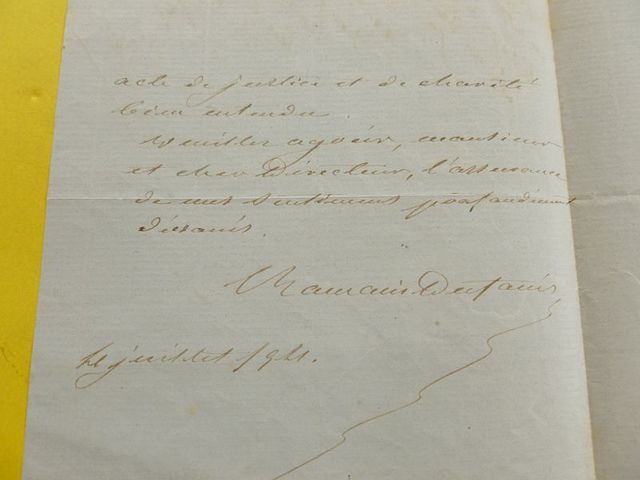 acte de justice et de charité
bien entendu.
Veuillez agréer, monsieur
et cher Directeur, l'assurance
de mes sentiments profondément
dévoués.
juillet